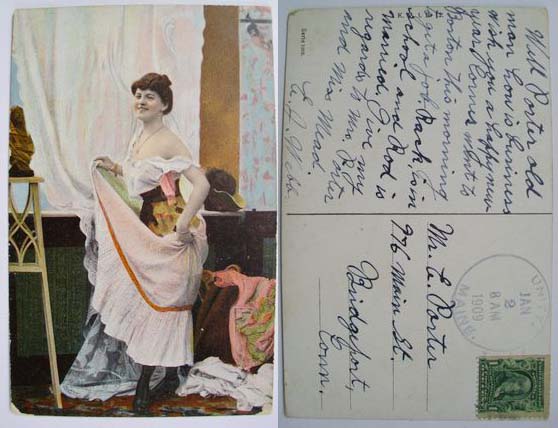 Well Porter old
man how is business
wish you a happy new
year went to
Boston this morning
to get a job Back in
school and Rod is
married. Give my
regards to Mrs Porter
and Miss Mead.
Webb.
Mr. E. Porter
976 Main St.
Bridgeport,
Conn.
JAN
2
8 AM
1909
MAINE